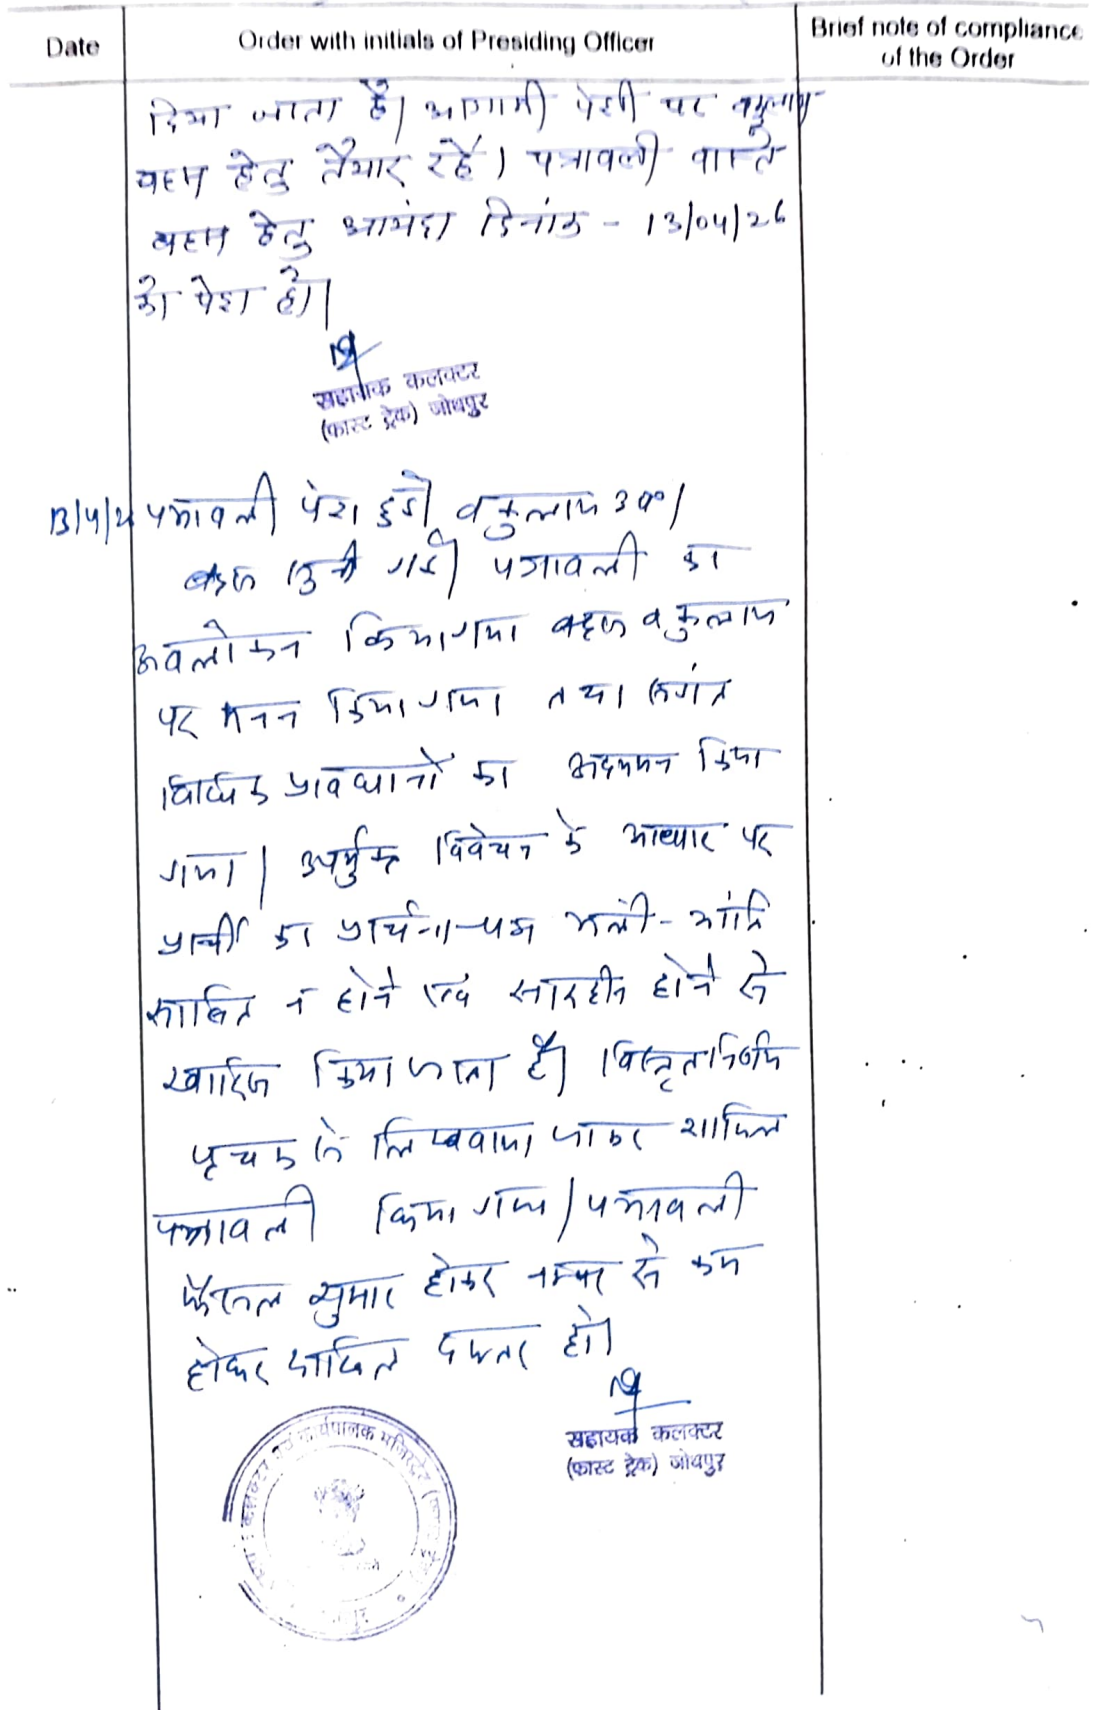 Date
Order with initials of Presiding Officer
Brief note of compliance
of the Order
दिया जाता है। आगामी पेशी पर वकुलाय
बहस हेतु तैयार रहें। पत्रावली वास्ते
बहस हेतु आयंदा दिनांक - 13/04/26
को पेश हो।
सहायक कलक्टर
(फास्ट ट्रेक) जोधपुर
13/4/26 पत्रावली पेश हुई। वकुलाय उप०।
बहस सुनी गई। पत्रावली का
अवलोकन किया गया बहस वकुलाय
पर मनन किया गया तथा संगत
विधिक प्रावधानों का अध्ययन किया
गया। उपर्युक्त विवेचन के आधार पर
प्रार्थी का प्रार्थना-पत्र भली-भांति
साबित न होने एवं सारहीन होने से
खारिज किया जाता है। विस्तृत निर्णय
पृथक से लिखवाया जाकर शामिल
पत्रावली किया गया। पत्रावली
फैसल शुमार होकर नम्बर से कम
होकर दाखिल दफ्तर हो।
सहायक कलक्टर
(फास्ट ट्रेक) जोधपुर
कलक्टर एवं कार्यपालक मजिस्ट्रेट